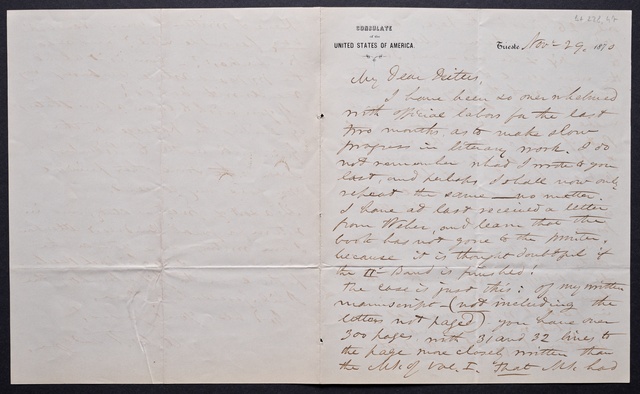 CONSULATE
of the
UNITED STATES OF AMERICA.
Trieste Nov. 29. 187
My Dear Deiters,
I have been so overwhelmed
with official labors for the last
two months, as to make slow
progress in literary work. I do
not remember what I wrote to you
last, and perhaps I shall now only
repeat the same — no matter.
I have at last received a letter
from Weber, and learn that the
book has not gone to the printer,
because it is thought doubtful if
the II Band is finished!
The case is just this: of my written
manuscript — (not including the
letters not paged) you have over
300 pages with 31 and 32 lines to
the page more closely written than
the Mk of Vol. I. That Mk. had